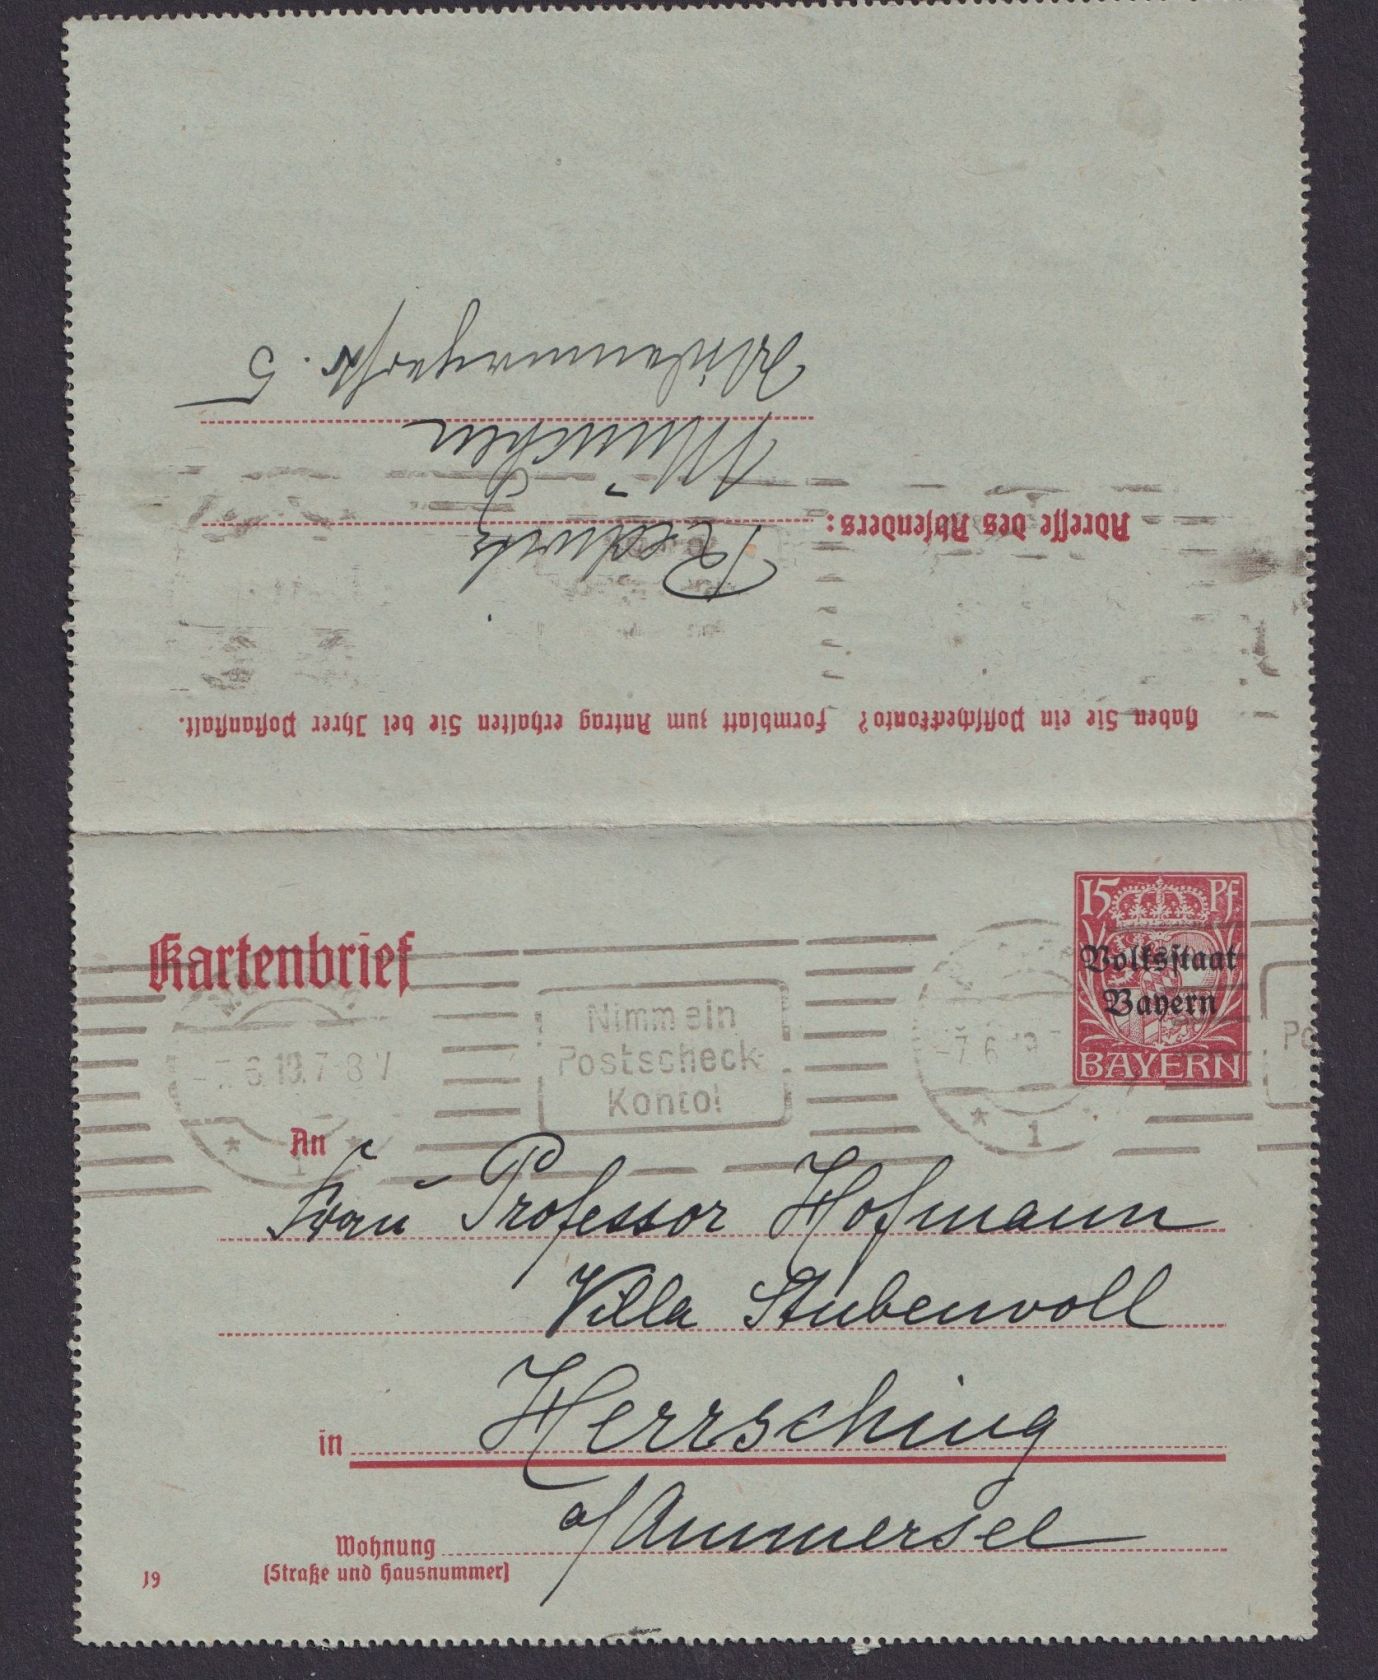 München
Adresse des Absenders:
Haben Sie ein Postscheckkonto? Formblatt zum Antrag erhalten Sie bei Ihrer Postanstalt.
15 Pf.
Volksstaat
Bayern
BAYERN
Kartenbrief
Nimm ein
Postscheck-
Konto!
-7.6.19.7-8 V
-7.6.19.7
* 1 *
* 1
An
Frau Professor Hofmann
Villa Stubenvoll
in Herrsching
a/Ammersee
Wohnung
(Straße und Hausnummer)
19